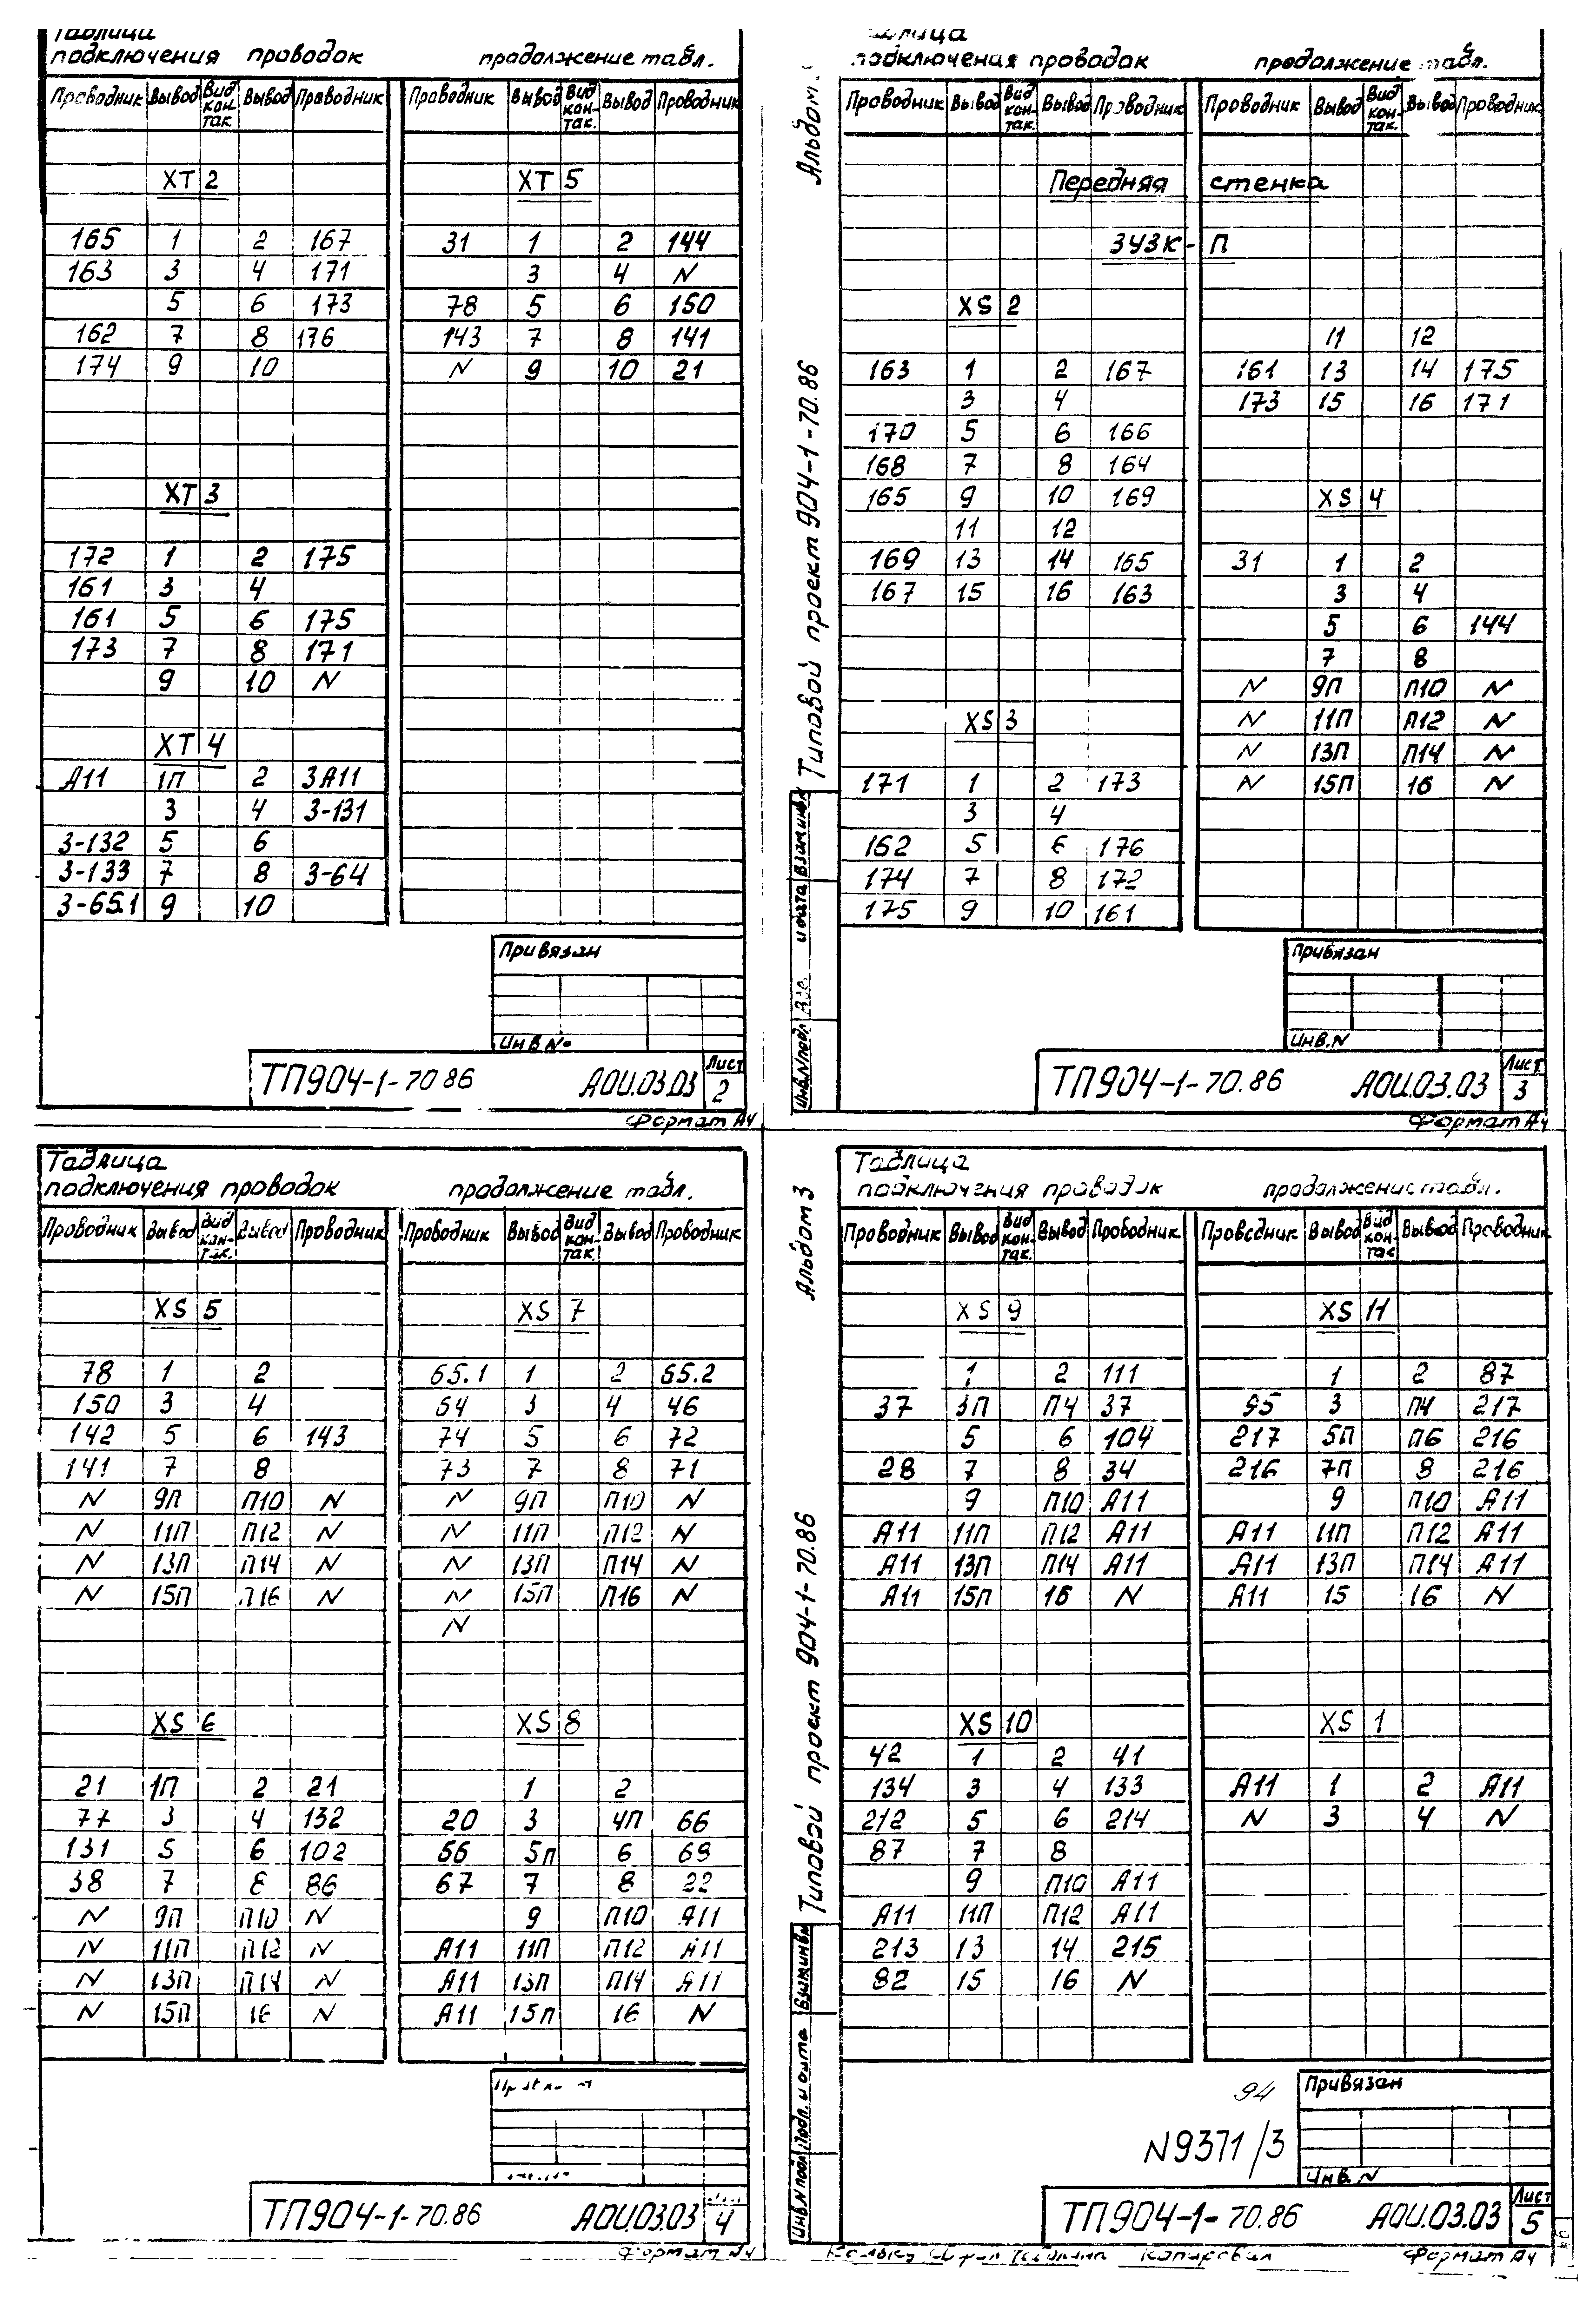 Таблица
подключения проводок продолжение табл.
Проводник Вывод Вид кон-так. Вывод Проводник Проводник Вывод Вид кон-так. Вывод Проводник
XT 2 XT 5
165 1 2 167 31 1 2 144
163 3 4 171 3 4 N
5 6 173 78 5 6 150
162 7 8 176 143 7 8 141
174 9 10 N 9 10 21
XT 3
172 1 2 175
161 3 4
161 5 6 175
173 7 8 171
9 10 N
XT 4
А11 1П 2 3А11
3 4 3-131
3-132 5 6
3-133 7 8 3-64
3-65.1 9 10
Привязан
Инв. №
ТП904-1-70.86 АОИ.03.03 Лист 2
Формат А4
подключения проводок продолжение табл.
Проводник Вывод Вид кон-так. Вывод Проводник Проводник Вывод Вид кон-так. Вывод Проводник
Передняя стенка
ЗУЗК-П
XS 2
11 12
163 1 2 167 161 13 14 175
3 4 173 15 16 171
170 5 6 166
168 7 8 164
165 9 10 169 XS 4
11 12
169 13 14 165 31 1 2
167 15 16 163 3 4
5 6 144
7 8
N 9П П10 N
XS 3 N 11П П12 N
N 13П П14 N
171 1 2 173 N 15П 16 N
3 4
162 5 6 176
174 7 8 172
175 9 10 161
Альбом
Типовой проект 904-1-70.86
Взам.инв.N
и дата
Инв.N подл
Привязан
Инв.N
ТП904-1-70.86 АОИ.03.03 Лист 3
Формат А4
Таблица
подключения проводок продолжение табл.
Проводник Вывод Вид кон-так. Вывод Проводник Проводник Вывод Вид кон-так. Вывод Проводник
XS 5 XS 7
78 1 2 65.1 1 2 65.2
150 3 4 64 3 4 46
142 5 6 143 74 5 6 72
141 7 8 73 7 8 71
N 9П П10 N N 9П П10 N
N 11П П12 N N 11П П12 N
N 13П П14 N N 13П П14 N
N 15П П16 N N 15П П16 N
N
XS 6 XS 8
21 1П 2 21 1 2
77 3 4 132 20 3 4П 66
131 5 6 102 66 5п 6 68
38 7 8 86 67 7 8 22
N 9П П10 N 9 П10 А11
N 11П П12 N А11 11П П12 А11
N 13П П14 N А11 13П П14 А11
N 15П 16 N А11 15П 16 N
ТП904-1-70.86 АОИ.03.03 4
Формат А4
Таблица
подключения проводок продолжение табл.
Проводник Вывод Вид кон-так. Вывод Проводник Проводник Вывод Вид кон-так Вывод Проводник
XS 9 XS 11
1 2 111 1 2 87
37 3П П4 37 95 3 П4 217
5 6 104 217 5П П6 216
28 7 8 34 216 7П 8 216
9 П10 А11 9 П10 А11
А11 11П П12 А11 А11 11П П12 А11
А11 13П П14 А11 А11 13П П14 А11
А11 15П 16 N А11 15 16 N
XS 10 XS 1
42 1 2 41
134 3 4 133 А11 1 2 А11
212 5 6 214 N 3 4 N
87 7 8
9 П10 А11
А11 11П П12 А11
213 13 14 215
82 15 16 N
Альбом 3
Типовой проект 904-1-70.86
Взам.инв.N
Подп. и дата
Инв.N подл
94
N9371/3
Привязан
Инв.N
ТП904-1-70.86 АОИ.03.03 Лист 5
Копировал Формат А4